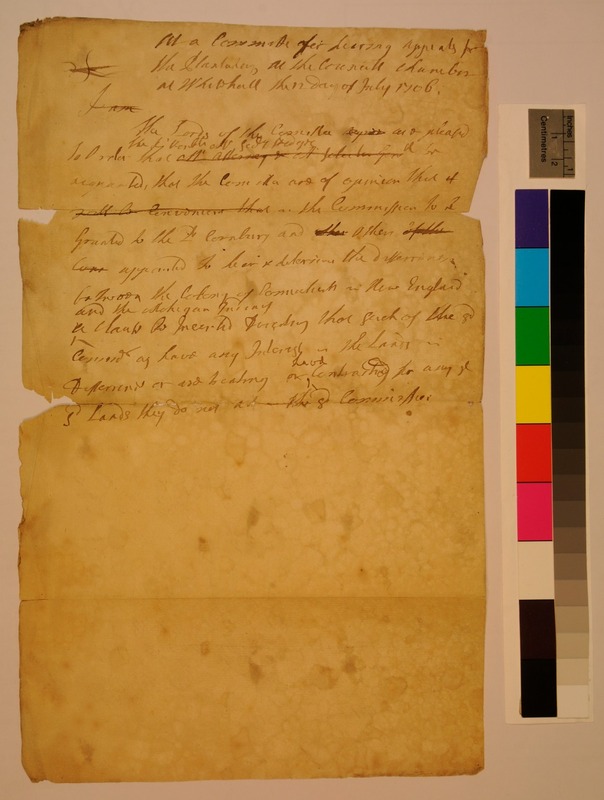 At a Committe for hearing Appeals from
the Plantations, At the Councill Chamber
at Whitehall the day of July 1706.
I am
The Lords of the Comittee are pleased
to Order that Attorney be
acquainted, that the Comittee are of opinion that it
will be Convenient that in the Commission to be
Granted to the Ld. Cornbury and others
appointed to hear & determine the differences
between the Colony of Connecticutt in New England
and the Mohegan Indians
a Clause be Inserted Directing that such of the sd
Comrs. as have any Interest in the Lands in
Difference or are treating or have Contracted for any
sd Lands they do not act the sd Commission
Centimetres
Inches
1
2
1